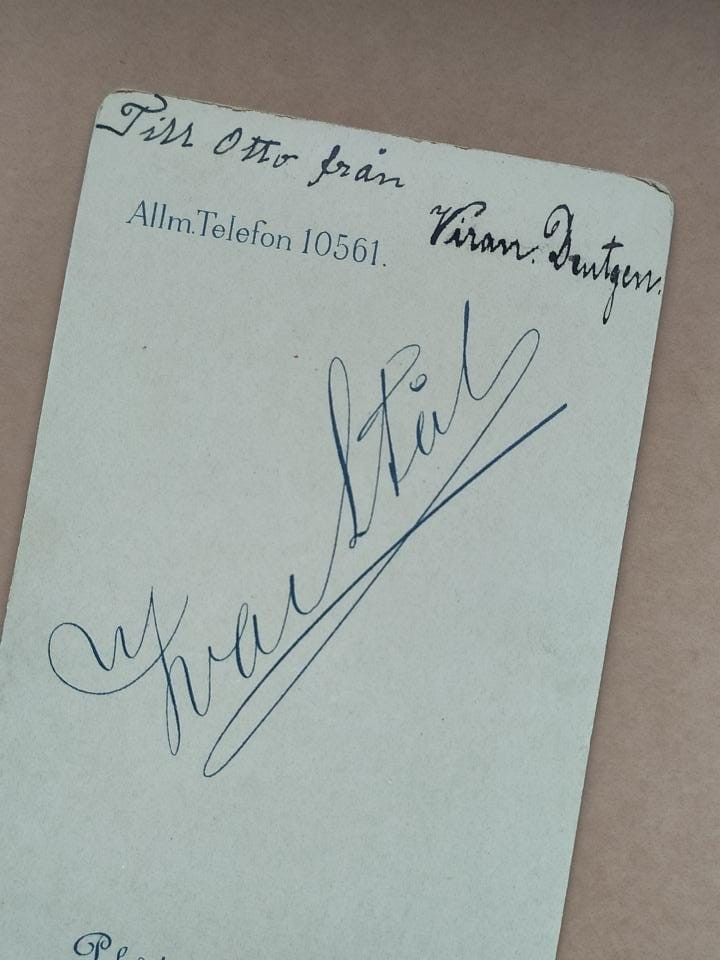 Till Otto från
Viran. Dentgen.
Allm. Telefon 10561.
Ivar Stål